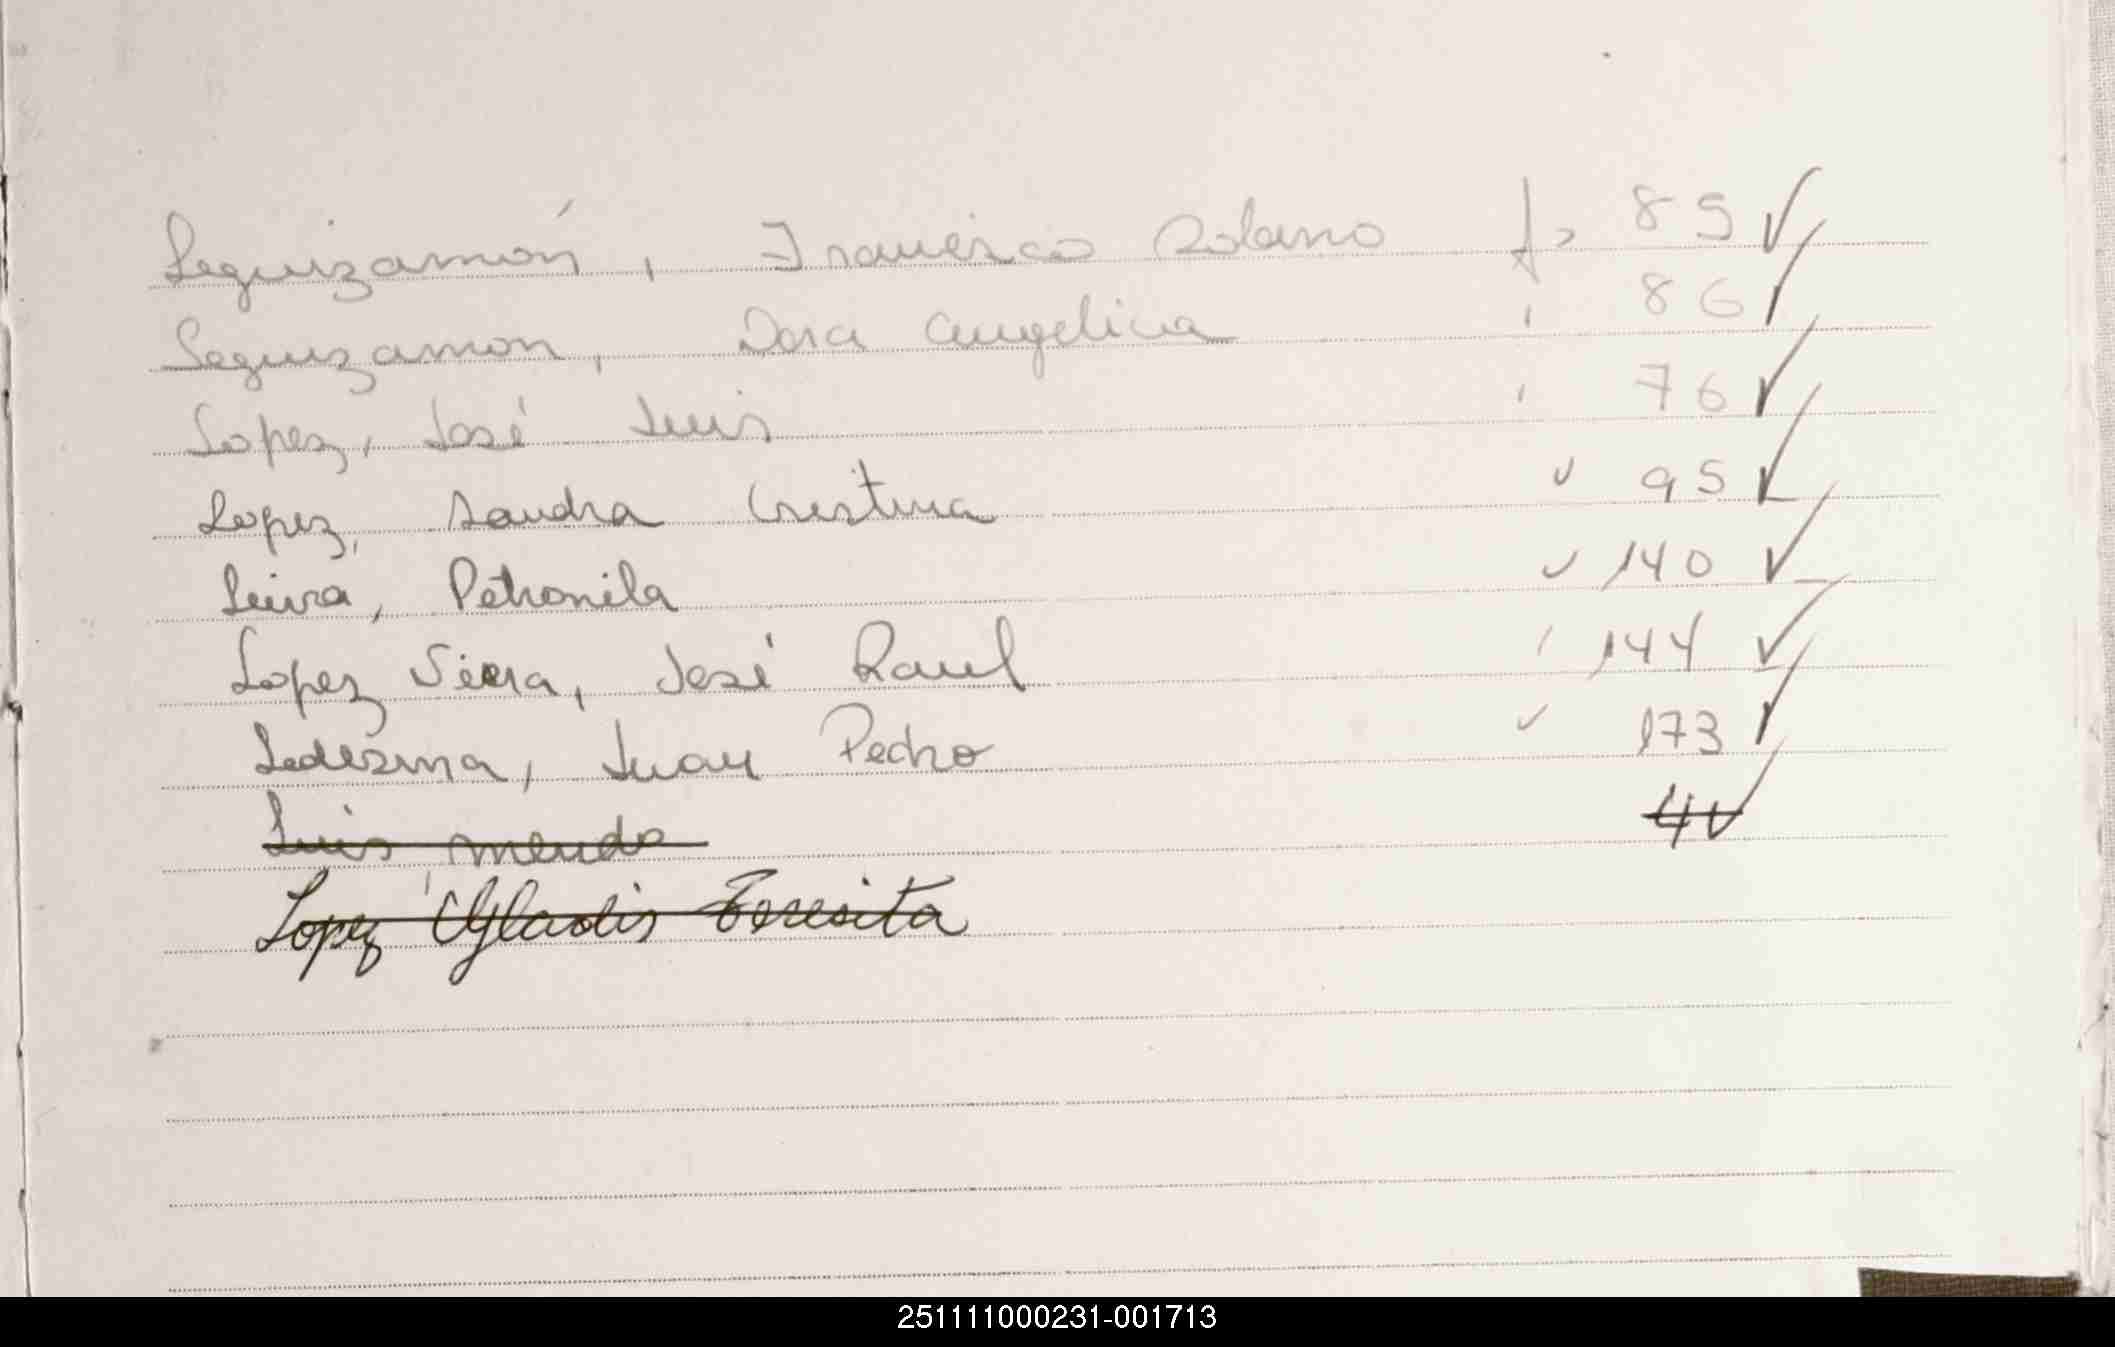 Leguizamón, Francisco Solano f> 85 ✓
Leguizamon, Dora Angelica ' 86 ✓
Lopez, José Luis ' 76 ✓
Lopez, Sandra Cristina ✓ 95 ✓
Leiva, Petronila ✓ 140 ✓
Lopez Viera, José Raul ' 144 ✓
Ledesma, Juan Pedro ✓ 173 ✓
Luis
Lopez Gladis Teresita
251111000231-001713